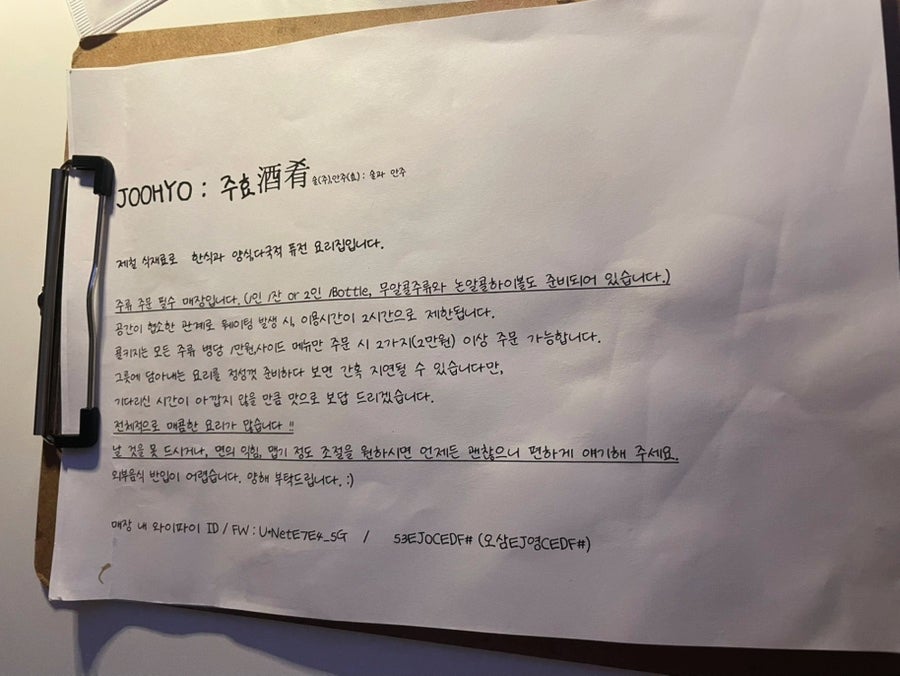 JOOHYO : 주효酒肴 술(주),안주(효) : 술과 안주
제철 식재료로 한식과 양식,다국적 퓨전 요리집입니다.
주류 주문 필수 매장입니다. (1인 1잔 or 2인 1Bottle, 무알콜주류와 논알콜하이볼도 준비되어 있습니다.)
공간이 협소한 관계로 웨이팅 발생 시, 이용시간이 2시간으로 제한됩니다.
콜키지는 모든 주류 병당 1만원,사이드 메뉴만 주문 시 2가지(2만원) 이상 주문 가능합니다.
그릇에 담아내는 요리를 정성껏 준비하다 보면 간혹 지연될 수 있습니다만,
기다리신 시간이 아깝지 않을 만큼 맛으로 보답 드리겠습니다.
전체적으로 매콤한 요리가 많습니다 !!
날 것을 못 드시거나, 면의 익힘, 맵기 정도 조절을 원하시면 언제든 괜찮으니 편하게 얘기해 주세요.
외부음식 반입이 어렵습니다. 양해 부탁드립니다. :)
매장 내 와이파이 ID / FW : U+NetE7E4_5G / 53EJ0CEDF# (오삼EJ영CEDF#)